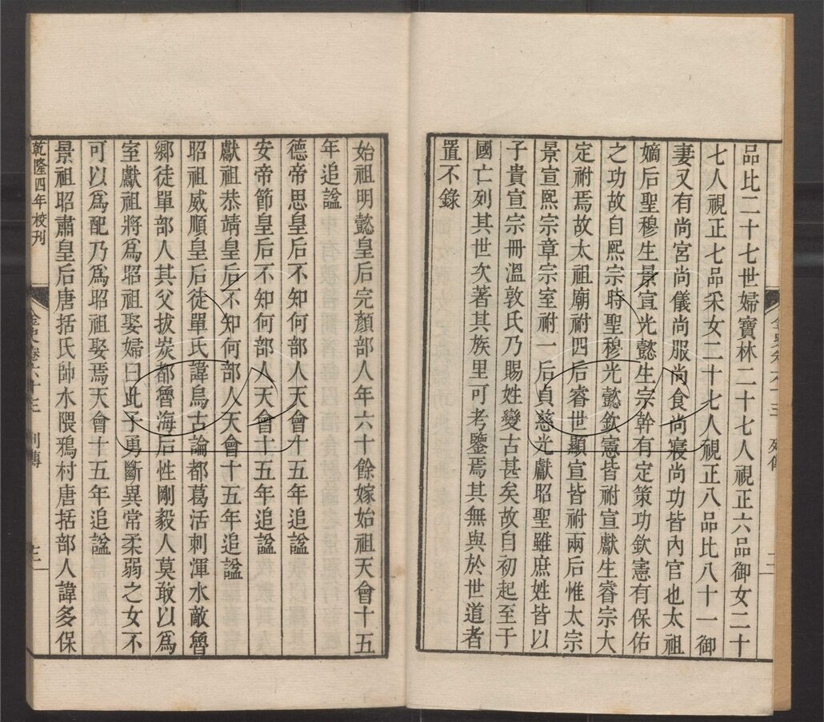 品比二十七世婦寶林二十七人視正六品御女二十
七人視正七品采女二十七人視正八品比八十一御
妻又有尚宮尚儀尚服尚食尚寢尚功皆內官也太祖
嫡后聖穆生景宣光懿生宗幹有定策功欽憲有保佑
之功故自熙宗時聖穆光懿欽憲皆祔宣獻生睿宗大
定祔焉故太祖廟祔四后睿世顯宣皆祔兩后惟太宗
景宣熙宗章宗室祔一后貞慈光獻昭聖雖庶姓皆以
子貴宣宗冊溫敦氏乃賜姓變古甚矣故自初起至于
國亡列其世次著其族里可考鑒焉其無與於世道者
置不錄
始祖明懿皇后完顏部人年六十餘嫁始祖天會十五
年追諡
德帝思皇后不知何部人天會十五年追諡
安帝節皇后不知何部人天會十五年追諡
獻祖恭靖皇后不知何部人天會十五年追諡
昭祖威順皇后徒單氏諱烏古論都葛活刺渾水敵魯
鄉徒單部人其父拔炭都魯海后性剛毅人莫敢以爲
室獻祖將爲昭祖娶婦曰此子勇斷異常柔弱之女不
可以爲配乃爲昭祖娶焉天會十五年追諡
景祖昭肅皇后唐括氏帥水隈鴉村唐括部人諱多保
乾隆四年校刊
金史卷六十三 列傳 三